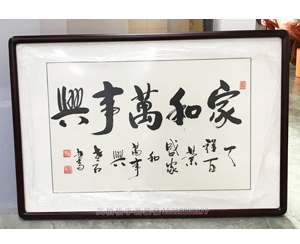 家和萬事興
祥百
業
盛家
和
萬事
興
書